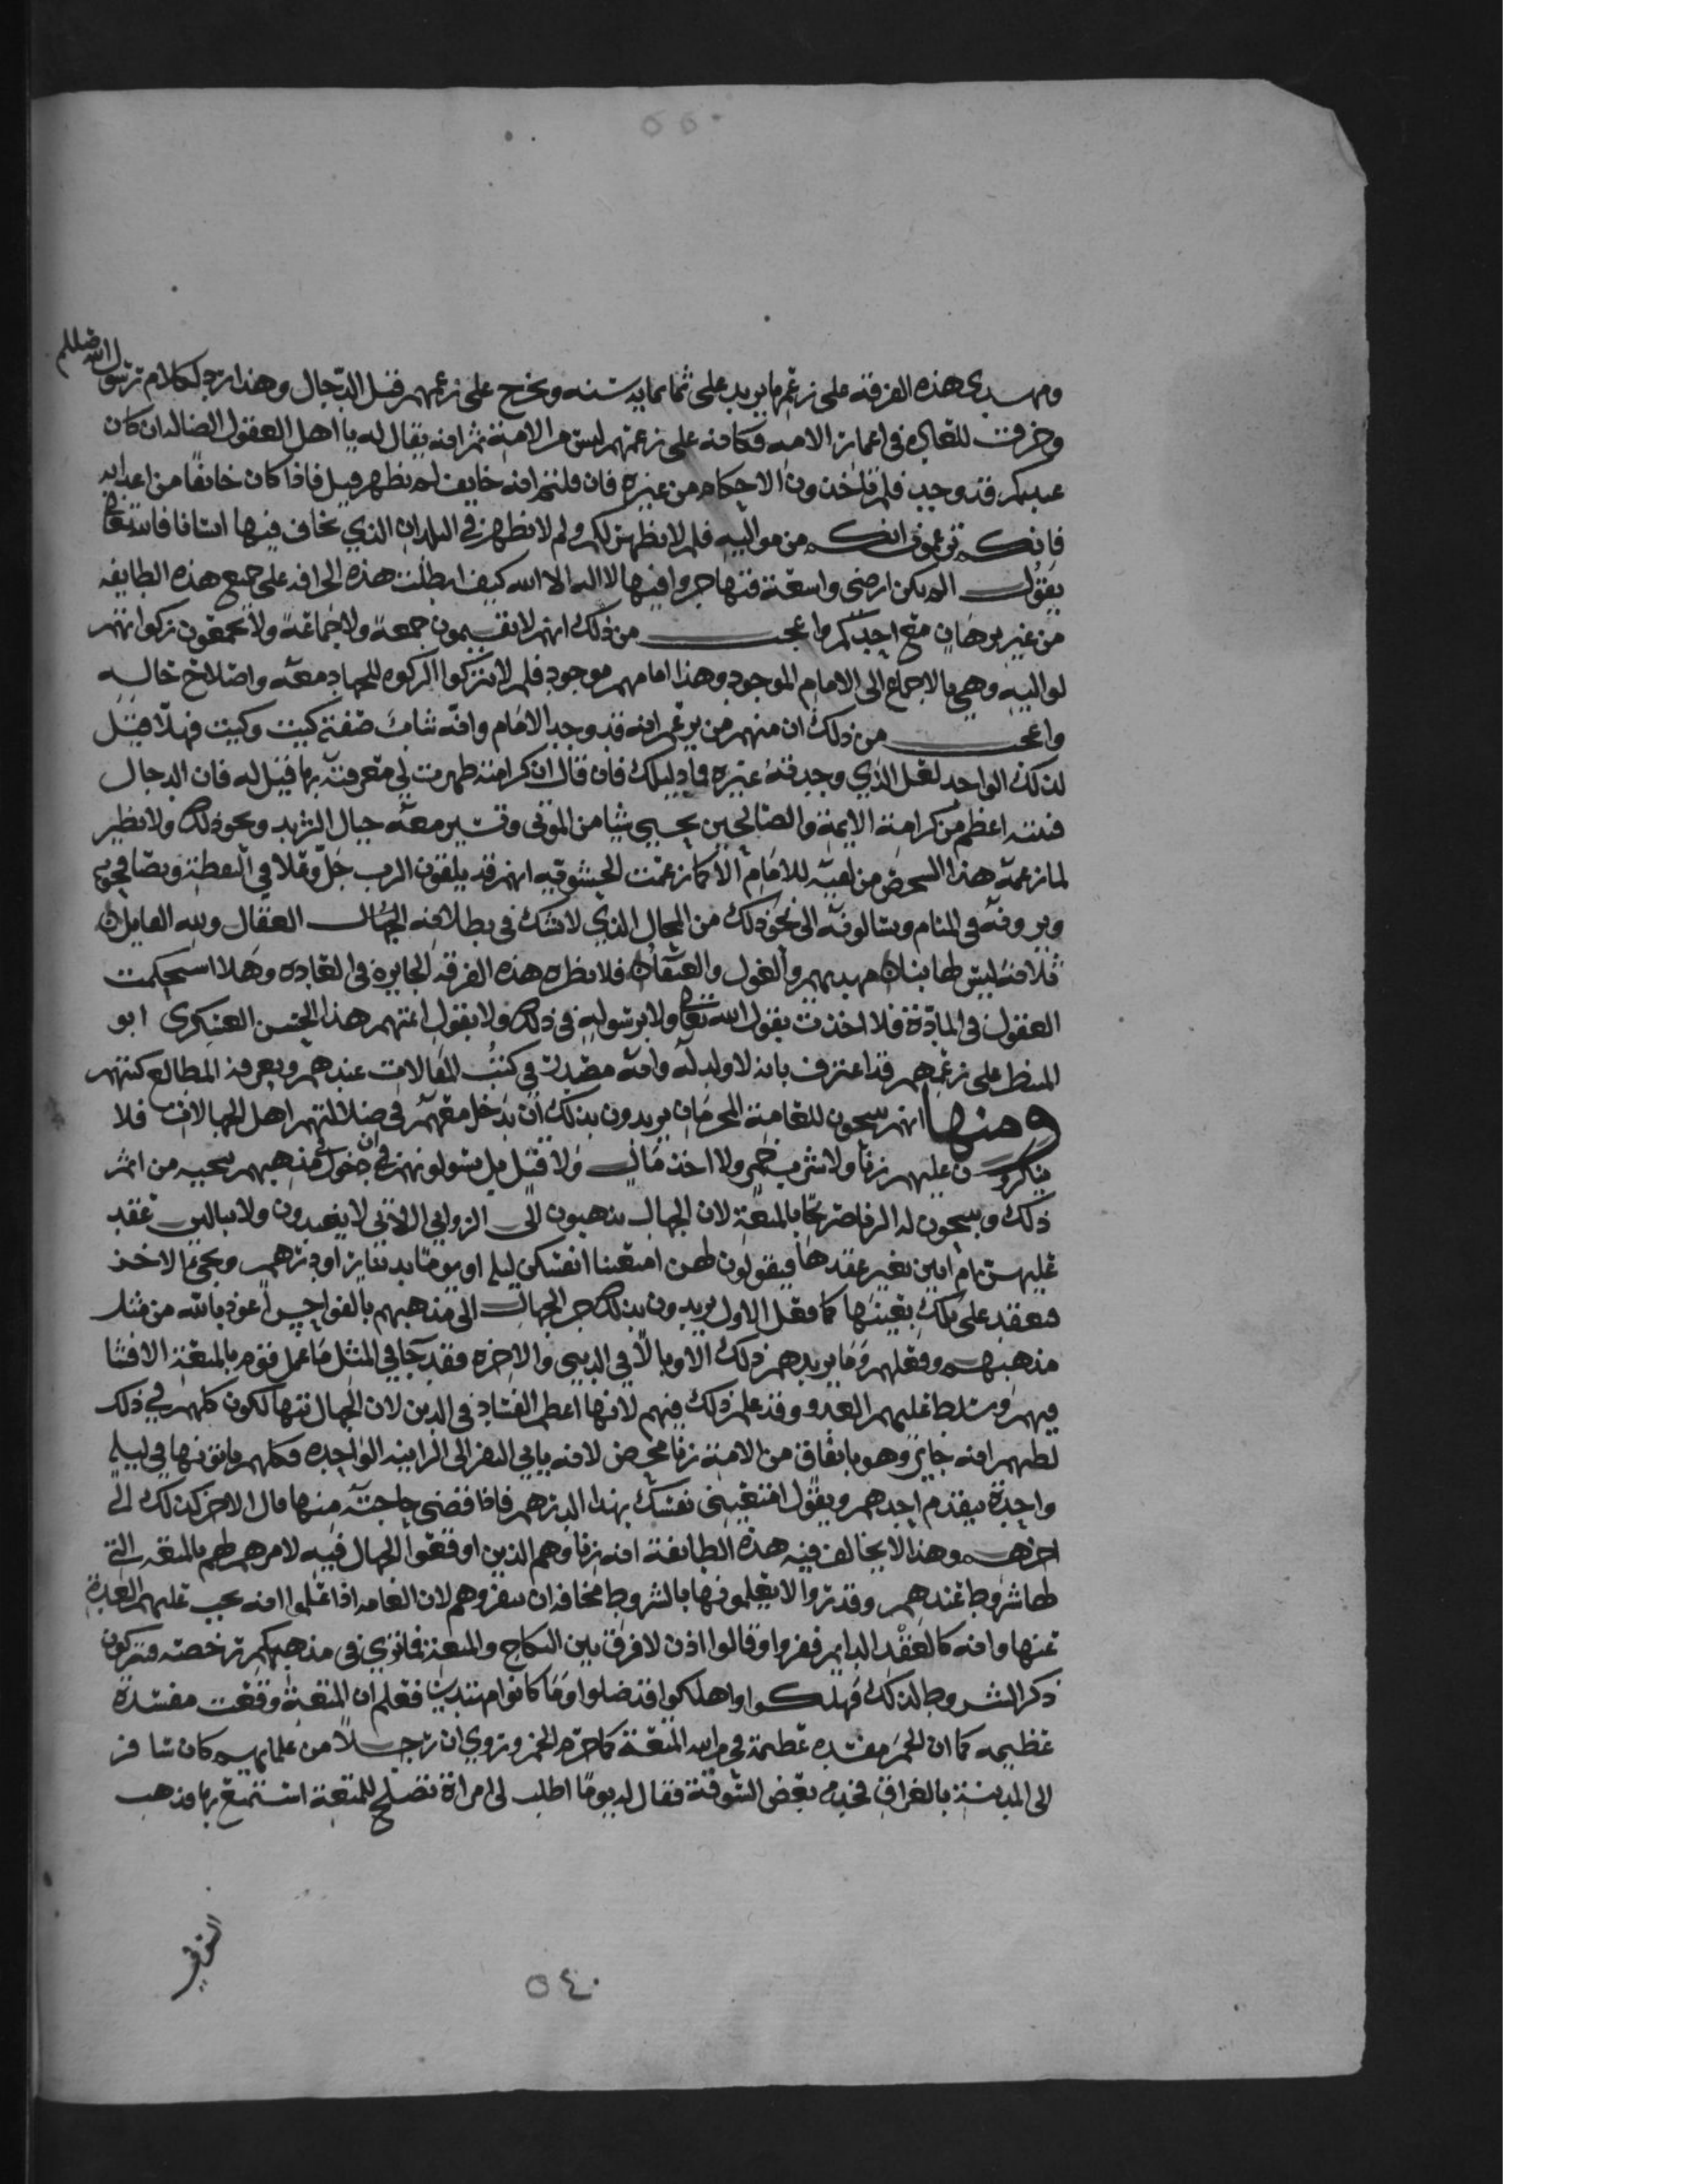 ٥٥٠
ومهدي هذه الفرقة على زعمهم ما يزيد على ثمانمايه سنه ويخرج على زعمهم قبل الدجال وهذا رد لكلام رسول الله صللم
وخرقت للعاده في اعمار الامه فكانه على زعمهم ليس من الامة ثم انه يقال له يا اهل العقول الضاله ان كان
عندكم قد وجد فلم تاخذون الاحكام من غيره فان قلتم انه خايف لم يظهر قيل فاذا كان خائفًا من اعدايه
فانكم تزعمون انكم من مواليه فلم لا يظهر لكم ولم لا يظهر في البلدان الذي يخاف فيها انسانا فالله تعالى
يقول الم تكن ارضي واسعة فتهاجروا فيها لا اله الا الله كيف ابطلت هذه الخرافه على جميع هذه الطايفه
من غير برهان مع احدكم واعجب من ذلك انهم لا يقيمون جمعة ولا جماعة ولا يجمعون زكواتهم
لواليه وهي بالاجماع الى الامام الموجود وهذا امامهم موجود فلم لا يتركوا الزكوه للجهاد معه واصلاح حاله
واعجب من ذلك ان منهم من يزعم انه قد وجد الامام وانه شاب صفته كيت وكيت فهلا قيل
لذلك الواحد لعل الذي وجدته غيره فما دليلك فان قال ان كرامته ظهرت لي معرفته بها قيل له فان الدجال
فتنته اعظم من كرامة الايمة والصالحين يحيي شيا من الموتى وتسير معه جبال الثريد ونحو ذلك ولا نظير
لما زعمه هذا الشخص من لقيه للامام الا كما زعمت الحشويه انهم قد يلقون الرب جل وعلا في اليقظة ويصافحهم
ويرونه في المنام ويسالونه الى نحو ذلك من المحال الذي لا شك في بطلانه الجهال العقال ولله القايل
العقول في المادة فلا اخذت بقول الله تعالى ولا برسوله في ذلك ولا بقول امتهم هذا الحسن العسكري ابو
المنتظر على زعمهم قد اعترف بانه لا ولد له وانه مصدق في كتب المقالات عندهم ويعرفه المطالع كتبهم
ومنها انهم يبيحون للعامة المحرمات يريدون بذلك ان يدخل معهم في ضلالتهم اهل الجهالات فلا
ينكرون عليهم زنا ولا شرب خمر ولا اخذ مال ولا قتيل بل يسولونهم في ان دخول مذهبهم ينجيه من اثم
ذلك ويبيحون له الزنا صريحا بالمتعة لان الجهال يذهبون الى الزواني الاتي لا يعتدون ولا يبالين عقد
فيعقد على تلك بعينها كما فعل الاول يريدون بذلك جر الجهال الى مذهبهم بالفواحش اعوذ بالله من مثل
مذهبهم وفعلهم وما يزيدهم ذلك الا وبالا في الدنيى والاخره فقد جا في المثل ما عمل قوم بالمتعة الا فشا
فيهم وسلط عليهم العدو وقد علم ذلك فيهم لانها اعظم الفساد في الدين لان الجهال تتهالكون كلهم في ذلك
لظنهم انه جايز وهو باتفاق من الامة زنا محض لانه ياتي النفر الى الزانيه الواحده فكلهم ياتونها في ليله
واحدة يتقدم احدهم ويقول امتعيني نفسك بهذا الدرهم فاذا قضى حاجته منها قال الاخر كذلك الى
اخرهم وهذا لا يخالف فيه هذه الطايفة انه زنا وهم الذين اوقعوا الجهال فيه لامرهم لهم بالمتعه التي
لها شروط عندهم وقد رأوا لا يعلمونها بالشروط مخافة ان ينفروهم لان العامه اذا علموا انه يجب عليهم العدة
منها وانه كالعقد الدايم نفروا وقالوا اذن لا فرق بين النكاح والمتعة فما نرى في مذهبكم رخصه فتركون
ذكر الشروط لذلك فهلكوا واهلكوا وضلوا وما كانوا مهتدين فعلم ان المتعة وقعت مفسدة
عظيمه كما ان الخمر مفسده عظيمة فحرم الله المتعة كما حرم الخمر وروي ان رجلا من علمايهم كان سافر
الى المدينة بالعراق فخدمه بعض السوقة فقال له يومًا اطلب لي امراة تصلح للمتعة استمتع بها فذهب
٥٤٠